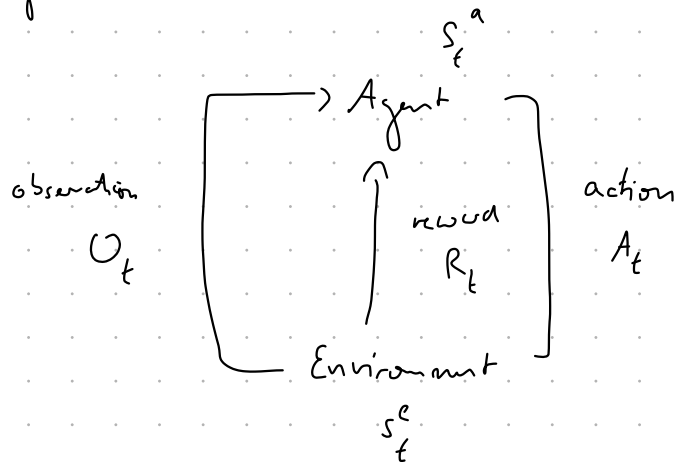 S_t^a
Agent
observation
O_t
reward
R_t
action
A_t
Environment
S_t^e